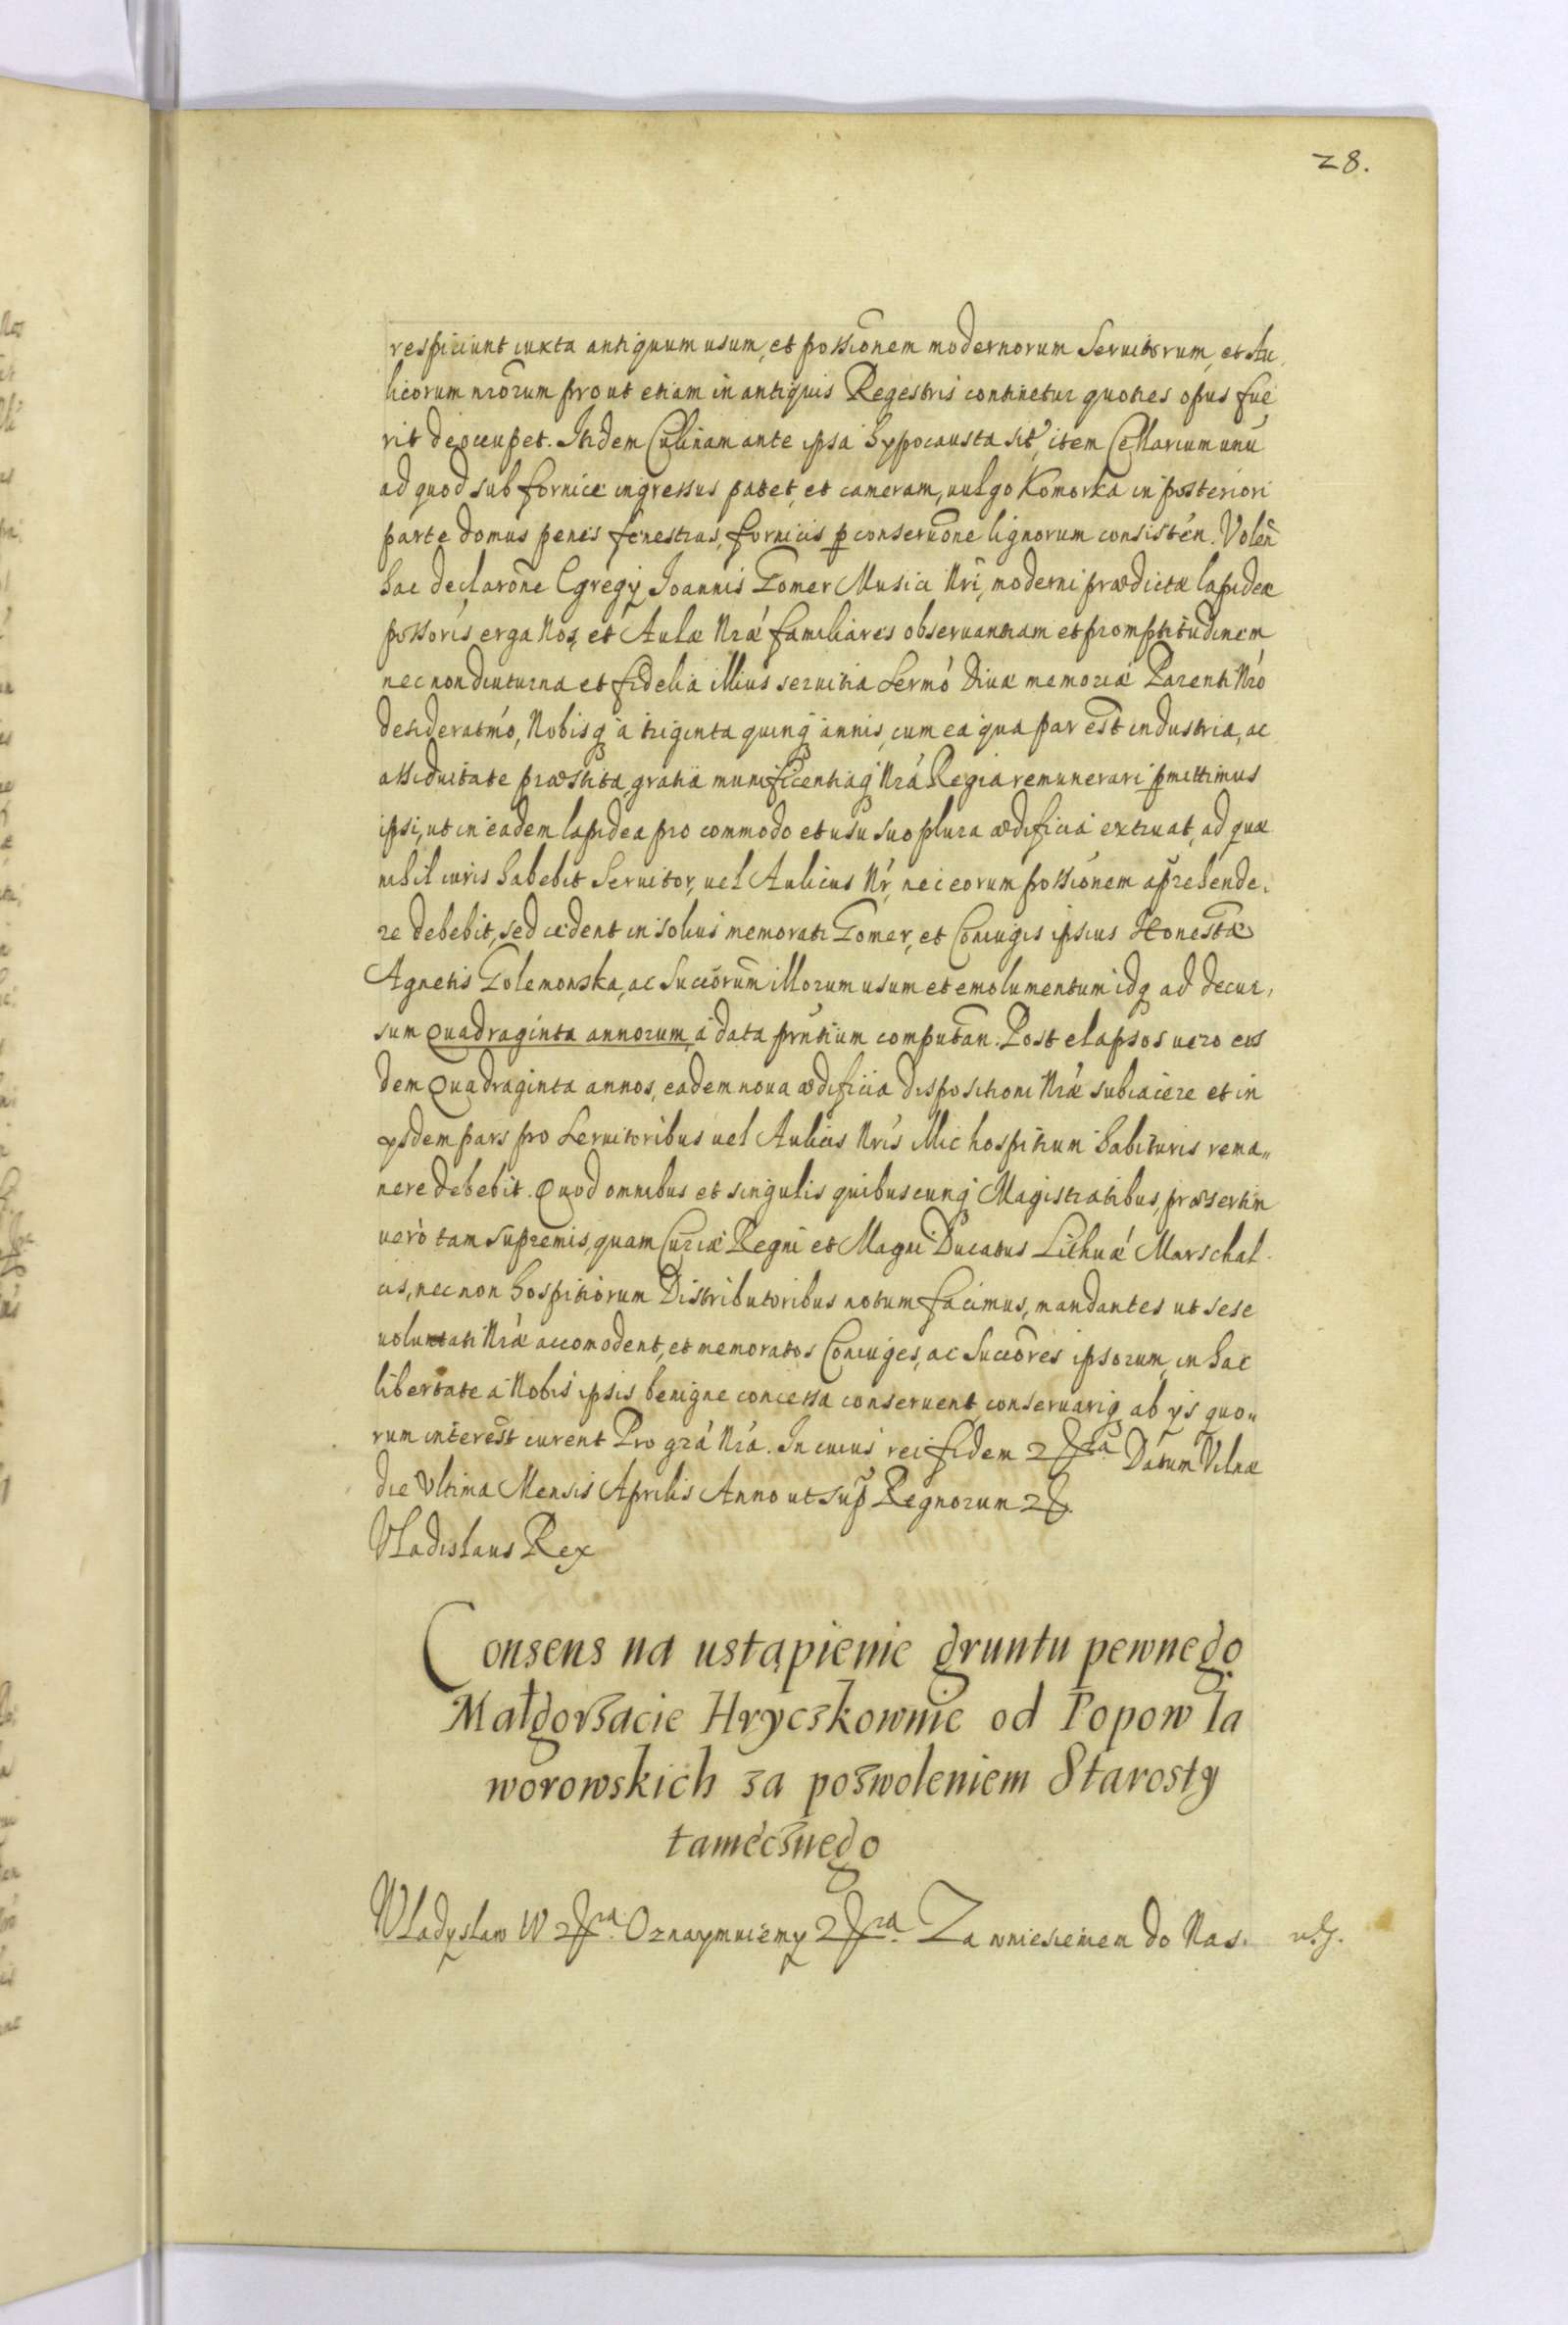 28.
respiciunt iuxta antiquum usum, et possionem modernorum Seruitorum, et Au,
licorum nrorum prout etiam in antiquis Regestris continetur quoties opus fue
rit deoccupet. Itidem Culinam ante ipsa hypocausta sit, item Cellarium unu
ad quod sub fornice ingressus patet, et cameram, uulgo Komorka in posteriori
parte domus penes fenestras, fornicis p conseruone lignorum consisten. Volen
hac declarone Egregy Joannis Gomer Musici Nri, moderni prædictæ lapideæ
possoris erga Nos, et Aulæ Nræ familiares obseruantiam et promptitudinem
nec non diuturna et fidelia illius seruitia Sermo Diuæ memoriæ Parenti Nro
desideratmo, Nobisq a triginta quinq annis, cum ea qua par est industria, ac
assiduitate præstita, gratia munificentiaq Nra Regia remunerari pmittimus
ipsi, ut in eadem lapidea pro commodo et usu suo plura ædificia extruat, ad quæ
nihil iuris habebit Seruitor, uel Aulicus Nr, nec eorum possionem aprehende,
re debebit, sed cedent in solius memorati Gomer, et Coniugis ipsius Honestæ
Agnetis Golemonska, ac Succorum illorum usum et emolumentum idq ad decur,
sum Quadraginta annorum, a data prntium computan. Post elapsos uero eos
dem Quadraginta annos, eadem noua ædificia dispositioni Nræ subiacere et in
ysdem pars pro Seruitoribus uel Aulicis Nris illic hospitium habituris rema„
nere debebit. Quod omnibus et singulis quibuscunq Magistratibus, præsertim
uero tam supremis, quam Curiæ Regni et Magni Ducatus Lithuæ Marschal
cis, nec non hospitiorum Distributoribus notum facimus, mandantes ut sese
uoluntati Nræ accomodent, et memoratos Coniuges, ac Succores ipsorum, in hac
libertate a Nobis ipsis benigne concessa conseruent, conseruariq ab ys quo„
rum interest curent Pro gra Nra. In cuius rei fidem Datum Vilnæ
die Vltima Mensis Aprilis Anno ut sup Regnorum
Vladislaus Rex
Consens na ustąpienie gruntu pewnego
Małgorzacie Hryczkownie od Popow Ia
worowskich za pozwoleniem Starosty
tamecznego
Wladyslaw IV Oznaymuiemy Za wniesieniem do Nas.